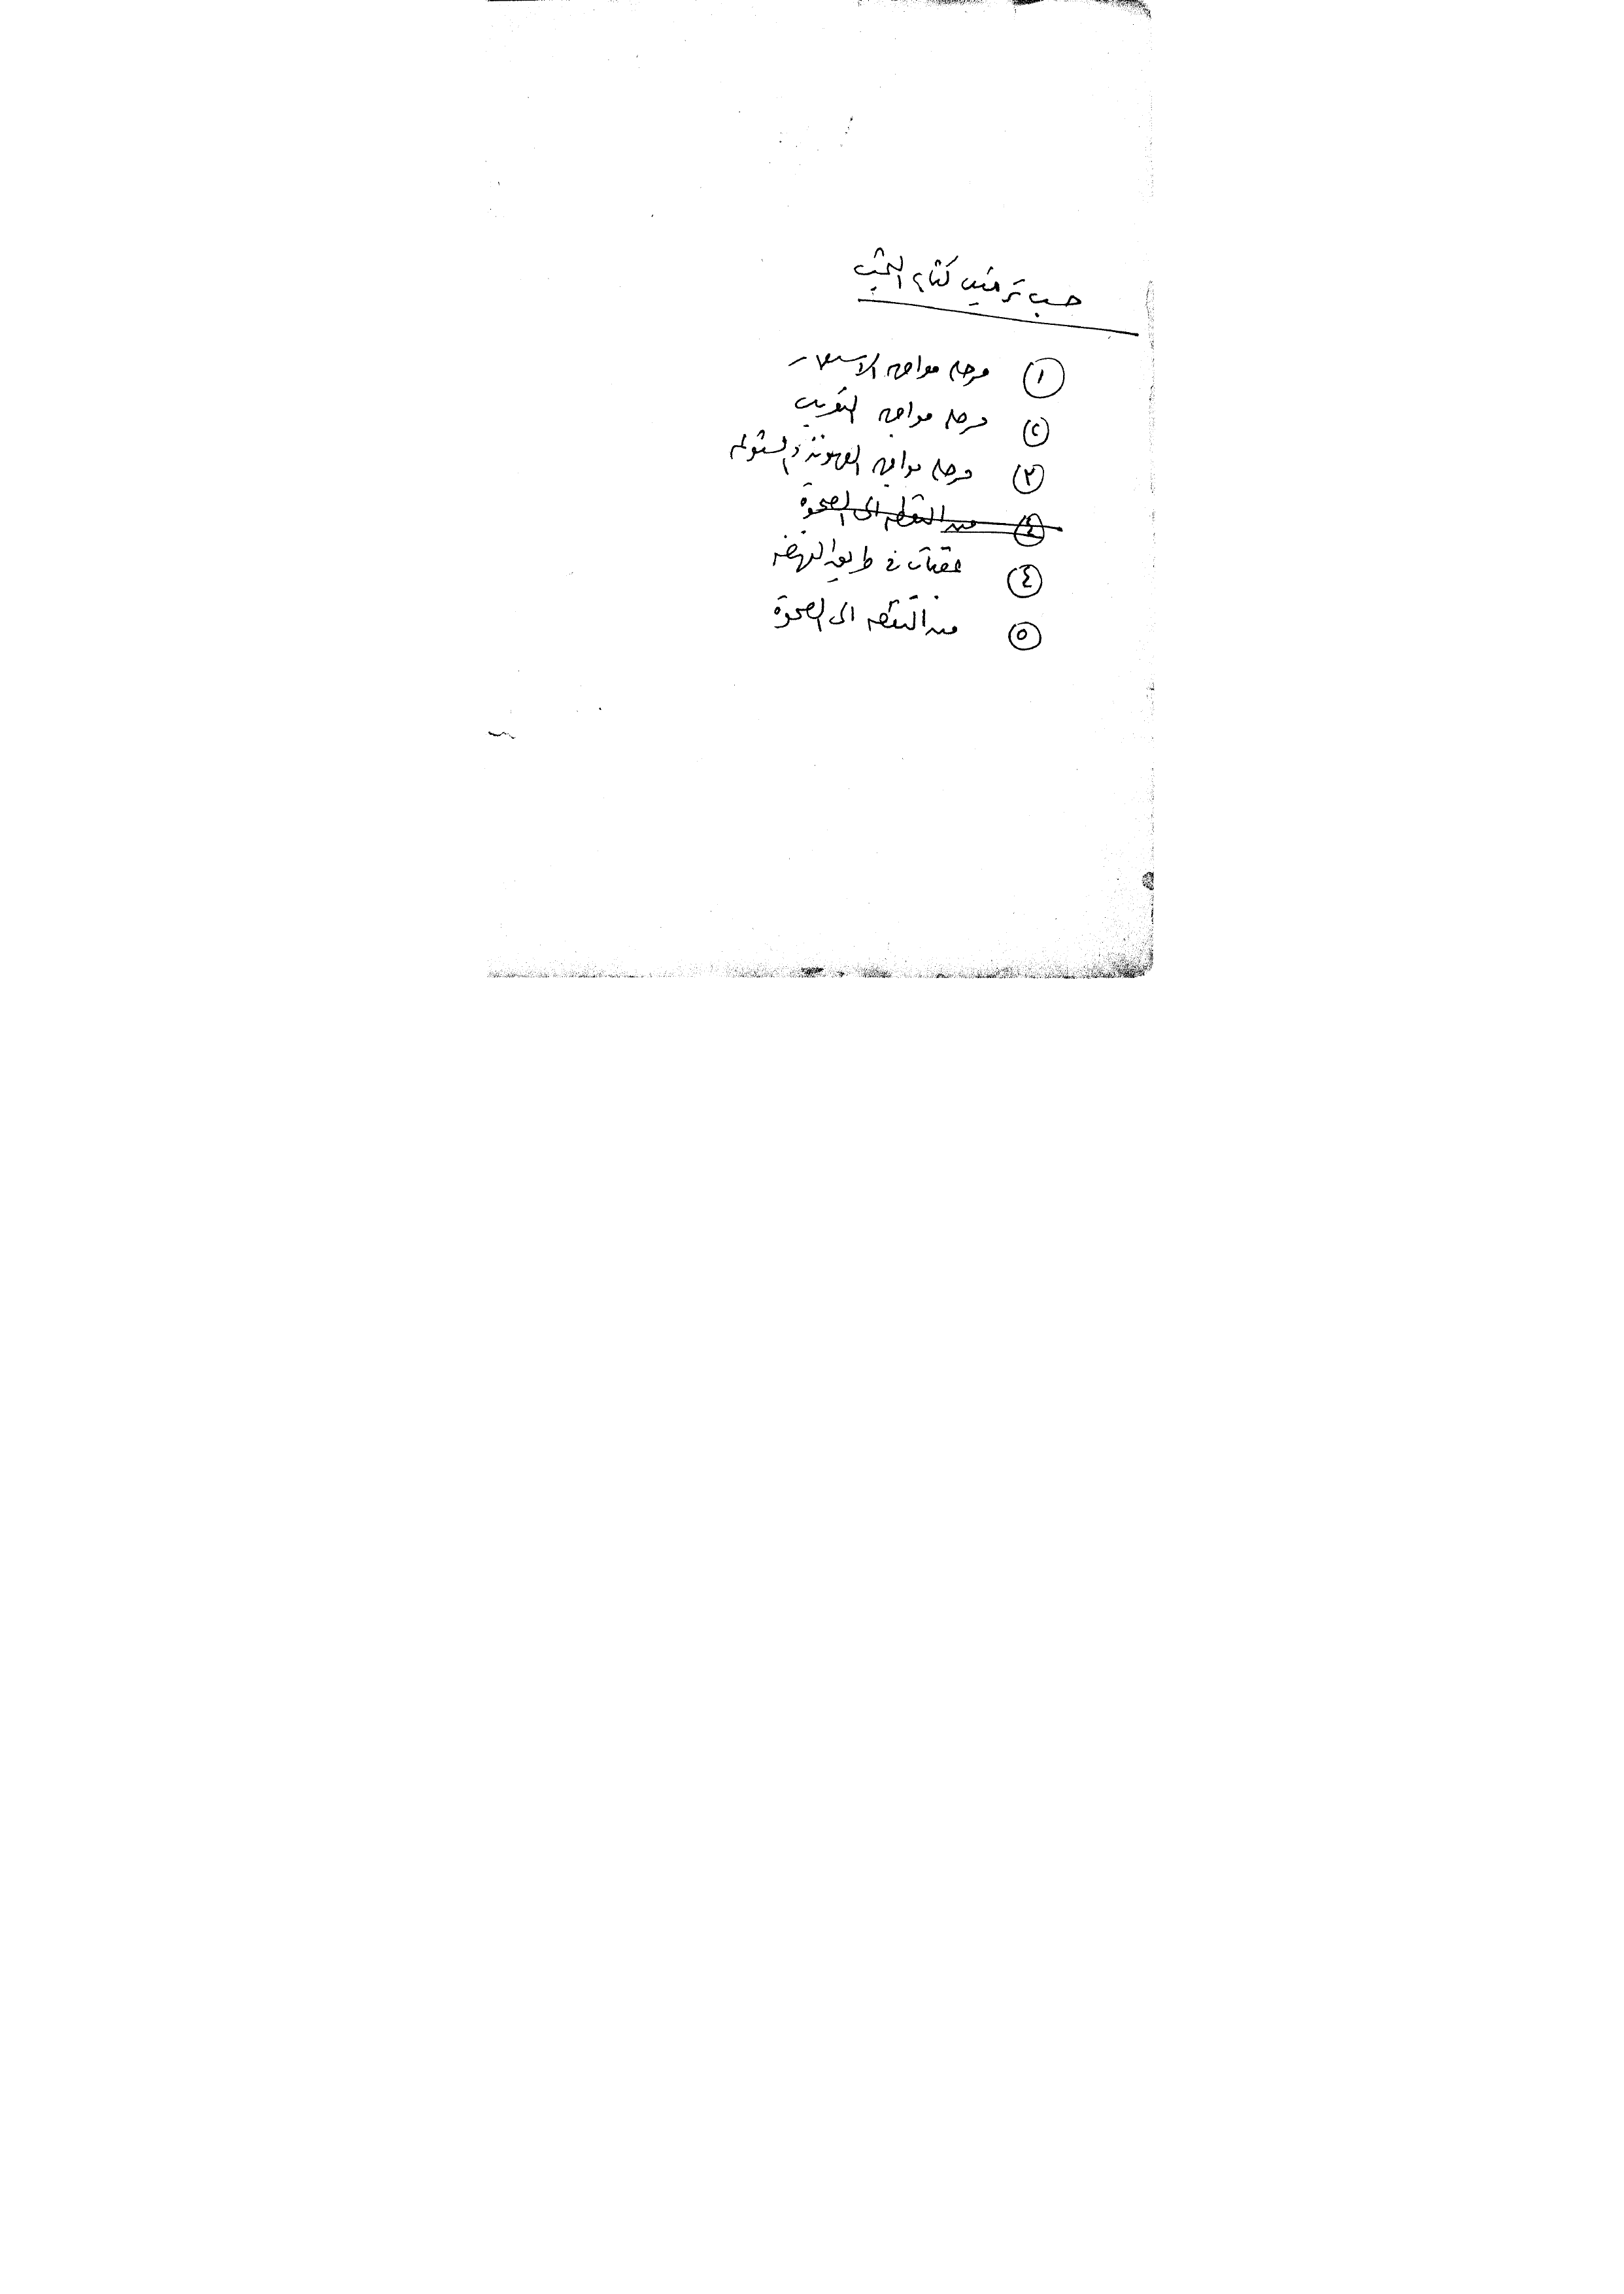 حسب ترتيب كتابة الكتب
① مرحلة مواجهة الاستعمار
② مرحلة مواجهة التغريب
③ مرحلة مواجهة الصهيونية والشيوعية
④ من اليقظة إلى الصحوة
④ عقبات في طريق النهضة
⑤ من اليقظة إلى الصحوة